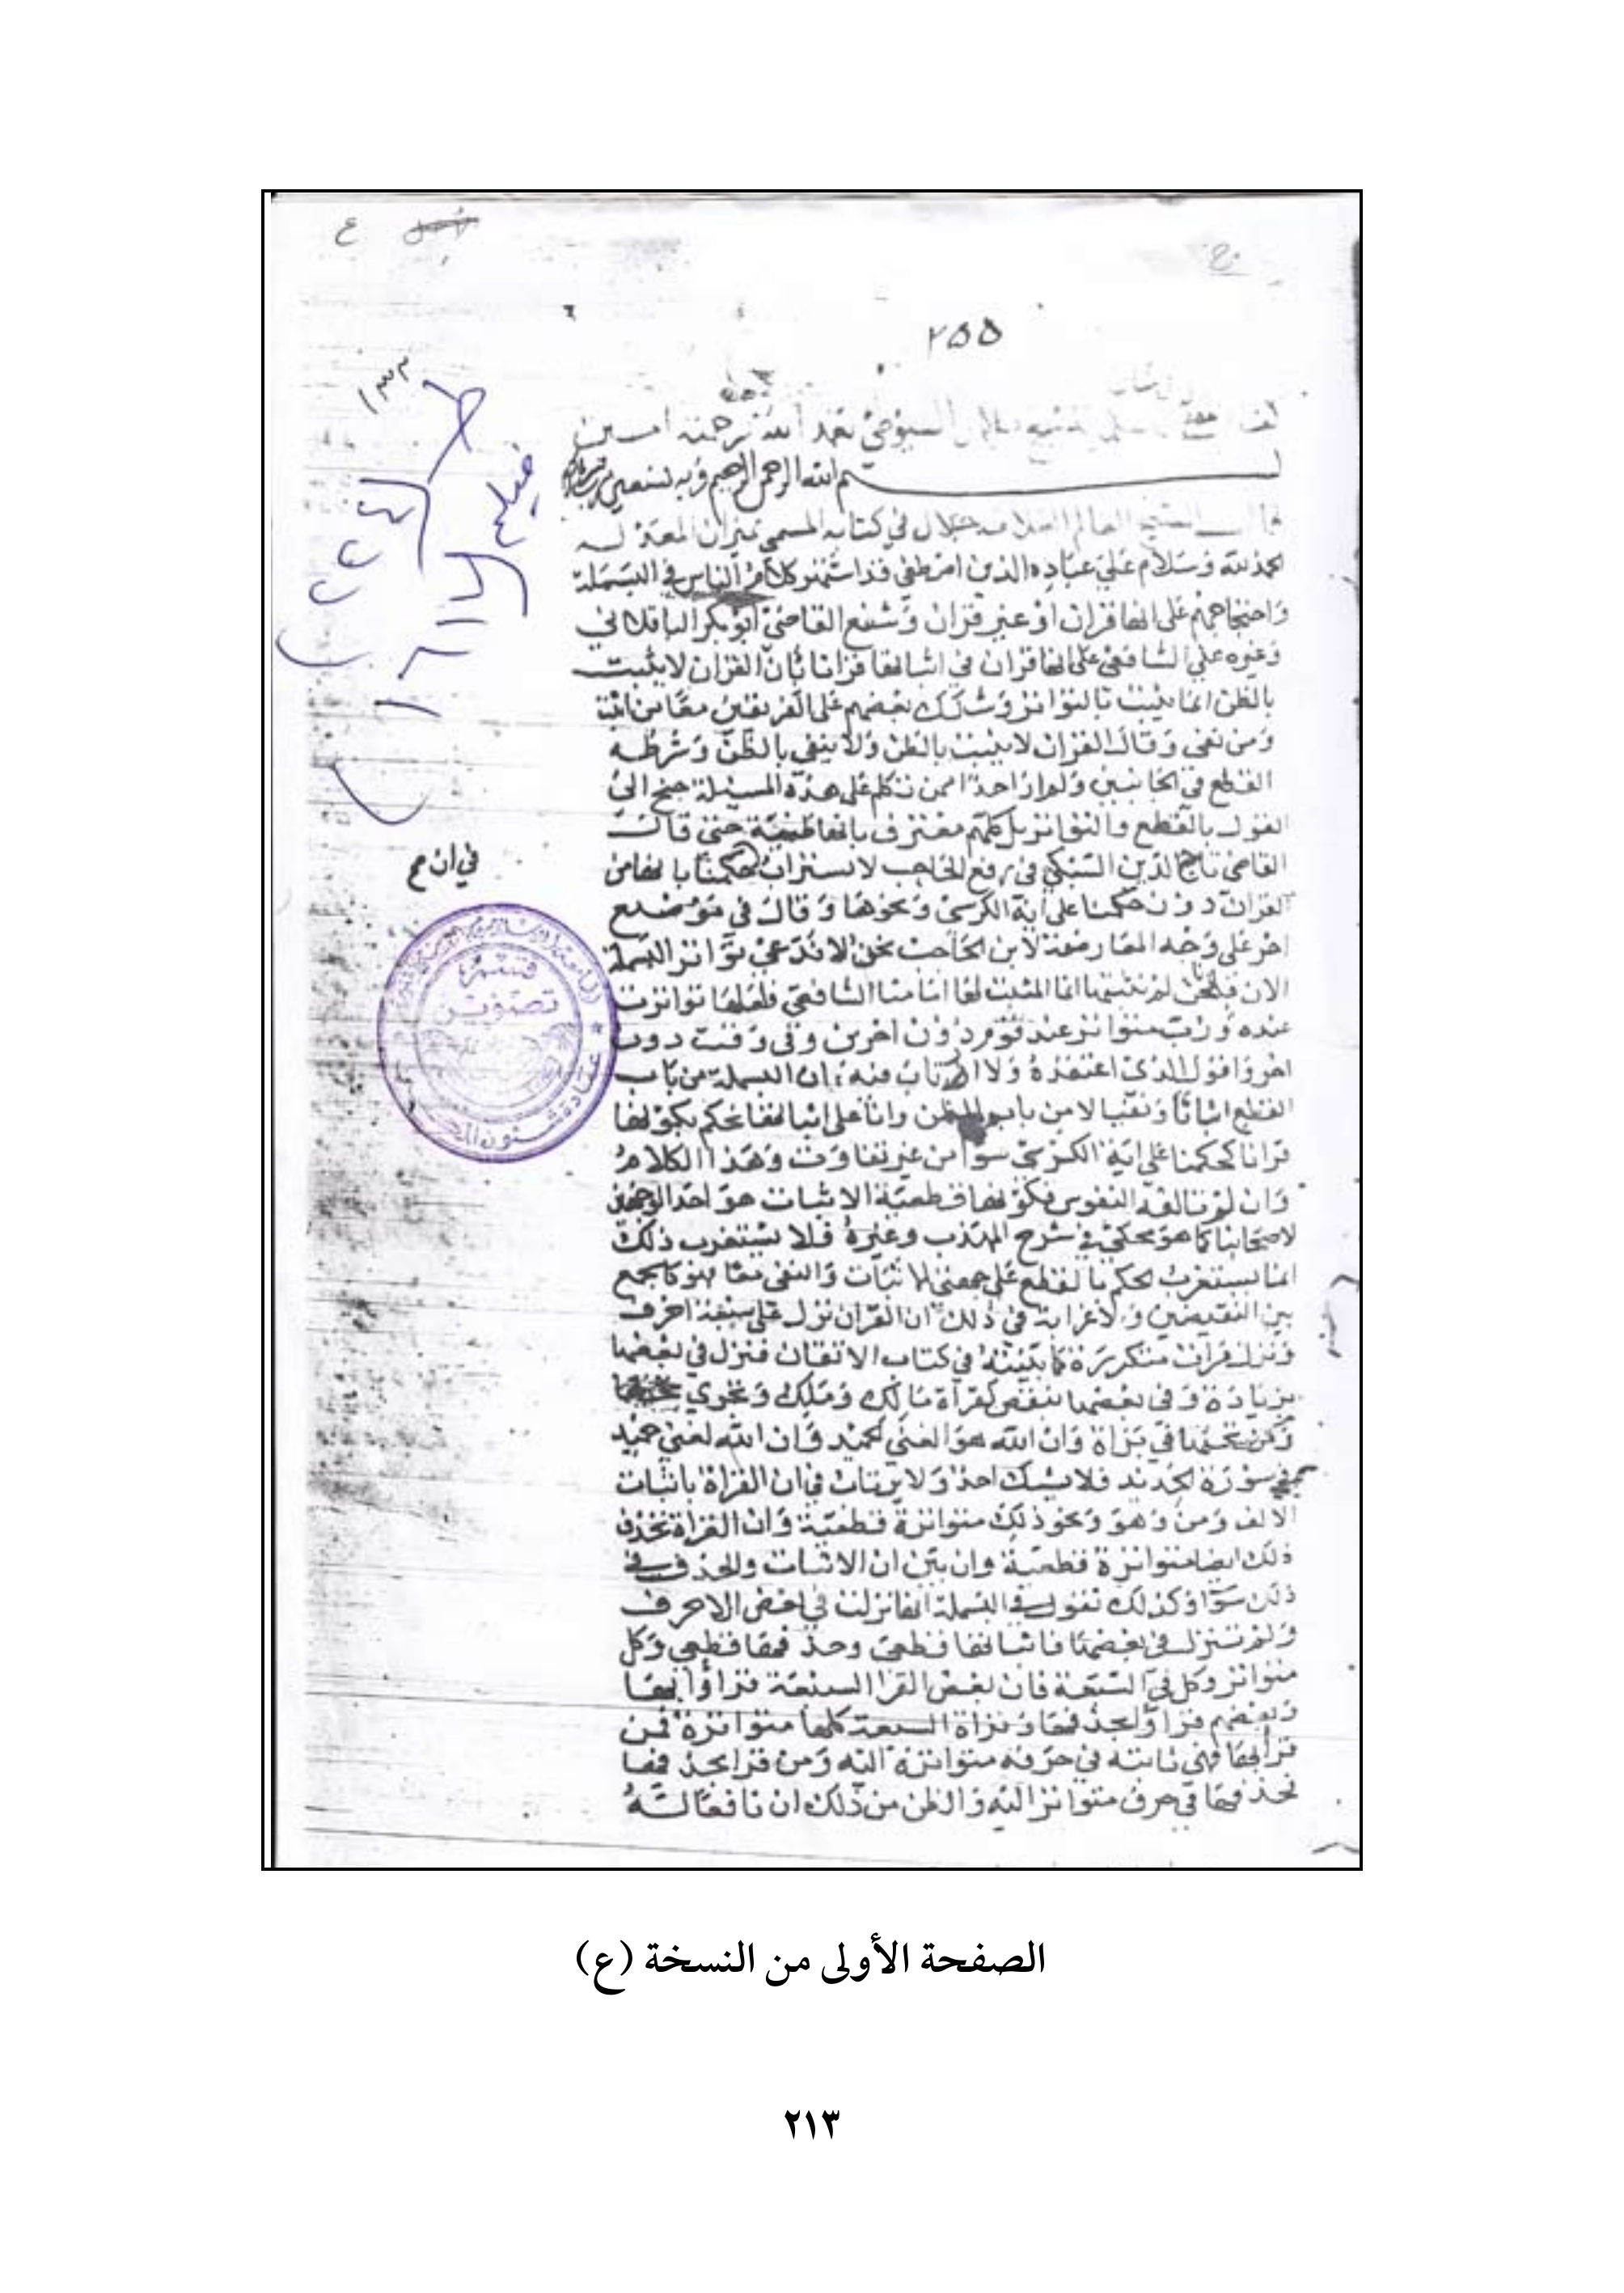 ع
٢٥٥
السيوطي تغمد الله برحمته امين
بسم الله الرحمن الرحيم وبه نستعين
الشيخ العالم العلامه جلال في كتابه المسمي بميزان المعدله
الحمد لله وسلام علي عباده الذين اصطفي قد اشتهر كلام الناس في البسملة
واحتجاجهم علي انها قران او غير قران وشنع القاضي ابو بكر الباقلاني
وغيره علي الشافعي علي انها قران في اثباتها قرانا بان القران لا يثبت
بالظن انما يثبت بالتواتر وشكك بعضهم علي الفريقين معا من اثبت
ومن نفي وقال القران لا يثبت بالظن ولا ينفي بالظن وشرطه
القطع في الجانبين ولم ار احدا ممن تكلم علي هذه المسيلة جنح الي
القول بالقطع والتواتر بل كلهم معترف بانها ظنية حتي قال
القاضي تاج الدين السبكي في رفع الحاجب لا نستراب حكمنا بانها من
القران دون حكمنا علي اية الكرسي ونحوها وقال في موضع
اخر علي وجه المعارضة لابن الحاجب نحن لا ندعي تواتر البسملة
الان فلنا نحن لم نثبتها انما المثبت لها امامنا الشافعي فلعلها تواترت
عنده ورب متواتر عند قوم دون اخرين وفي وقت دون
اخر واقول الذي اعتقده ولا ارتاب فيه ان البسملة من باب
القطع اثباتا ونفيا لا من باب الظن وانا علي اثباتها نحكم بكونها
قرانا كحكمنا علي اية الكرسي سوا من غير تفاوت وهذا الكلام
وان لم تالفه النفوس فكونها قطعية الاثبات هو احد الوجهين
لاصحابنا كما هو محكي في شرح المهذب وغيره فلا يستغرب ذلك
انما يستغرب الحكم بالقطع علي جهتي الاثبات والنفي معا اذ هو كالجمع
بين النقيضين ولا غرابة في ذلك ان القران نزل علي سبعة احرف
ونزل مرات متكررة كما بينته في كتاب الاتقان فنزل في بعضها
بزيادة وفي بعضها بنقص كقرأة مالك وملك وتجري تحتها
ومن تحتها في براة وان الله هو الغني الحميد وان الله لغني حميد
في سورة الحديد فلا يشك احد ولا يرتاب في ان القراة باثبات
الالف ومن وهو ونحو ذلك متواترة قطعية وان القراة بحذف
ذلك ايضا متواترة قطعية وان بين ان الاثبات والحذف في
ذلك سوا وكذلك نقول في البسملة انها نزلت في بعض الاحرف
ولم تنزل في بعضها فاثباتها قطعي وحذفها قطعي وكل
متواتر وكل في السبعة فان بعض القرا السبعة قراوا بها
وبعضهم قراوا بحذفها وقراة السبعة كلها متواترة فمن
قرا بها فهي ثابتة في حرفه متواترة اليه ومن قرا بحذفها
فحذفها في حرف متواتر اليه والظن من ذلك ان نافعا له
في ان مح
قسم
تصوير
عمادة شئون المكتبات
الصفحة الأولى من النسخة (ع)
٢١٣